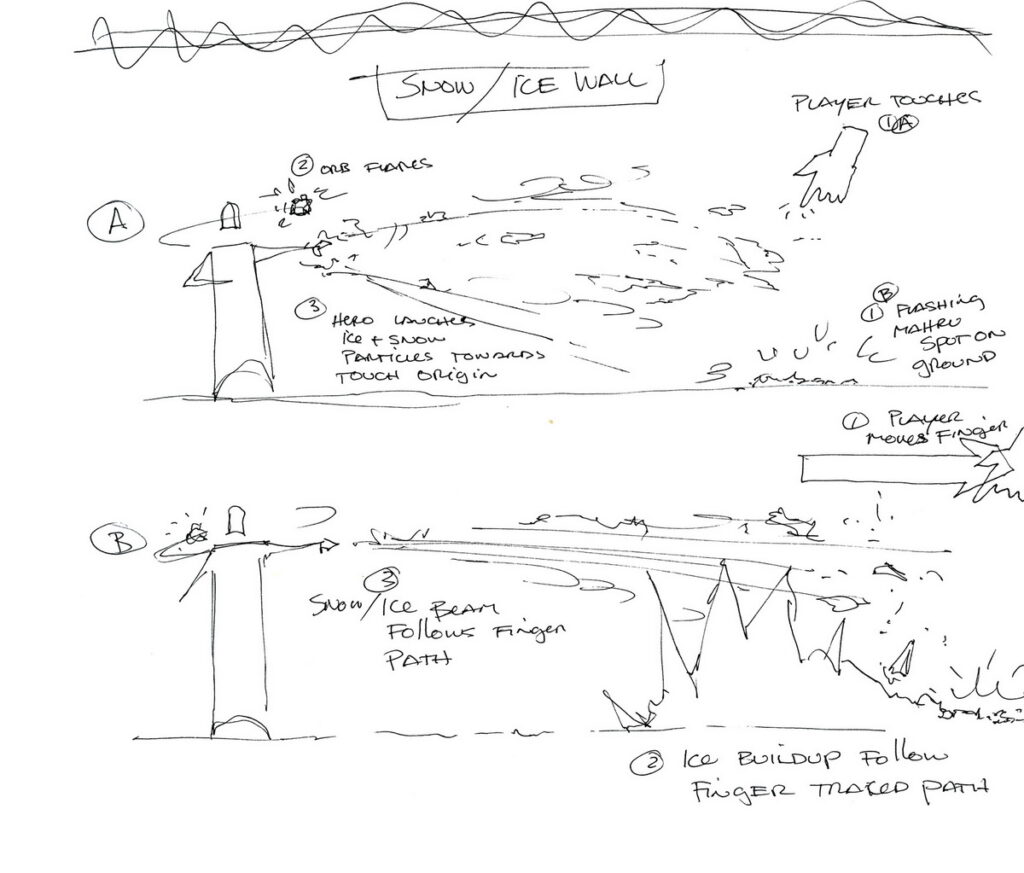 SNOW/ICE WALL
PLAYER TOUCHES
1 A
2 ORB FLARES
A
3 HERO LAUNCHES
ICE + SNOW
PARTICLES TOWARDS
TOUCH ORIGIN
B
1 FLASHING
SPOT ON
GROUND
1 PLAYER
MOVES FINGER
B
3
SNOW/ICE BEAM
FOLLOWS FINGER
PATH
2 ICE BUILDUP FOLLOW
FINGER TRAKED PATH